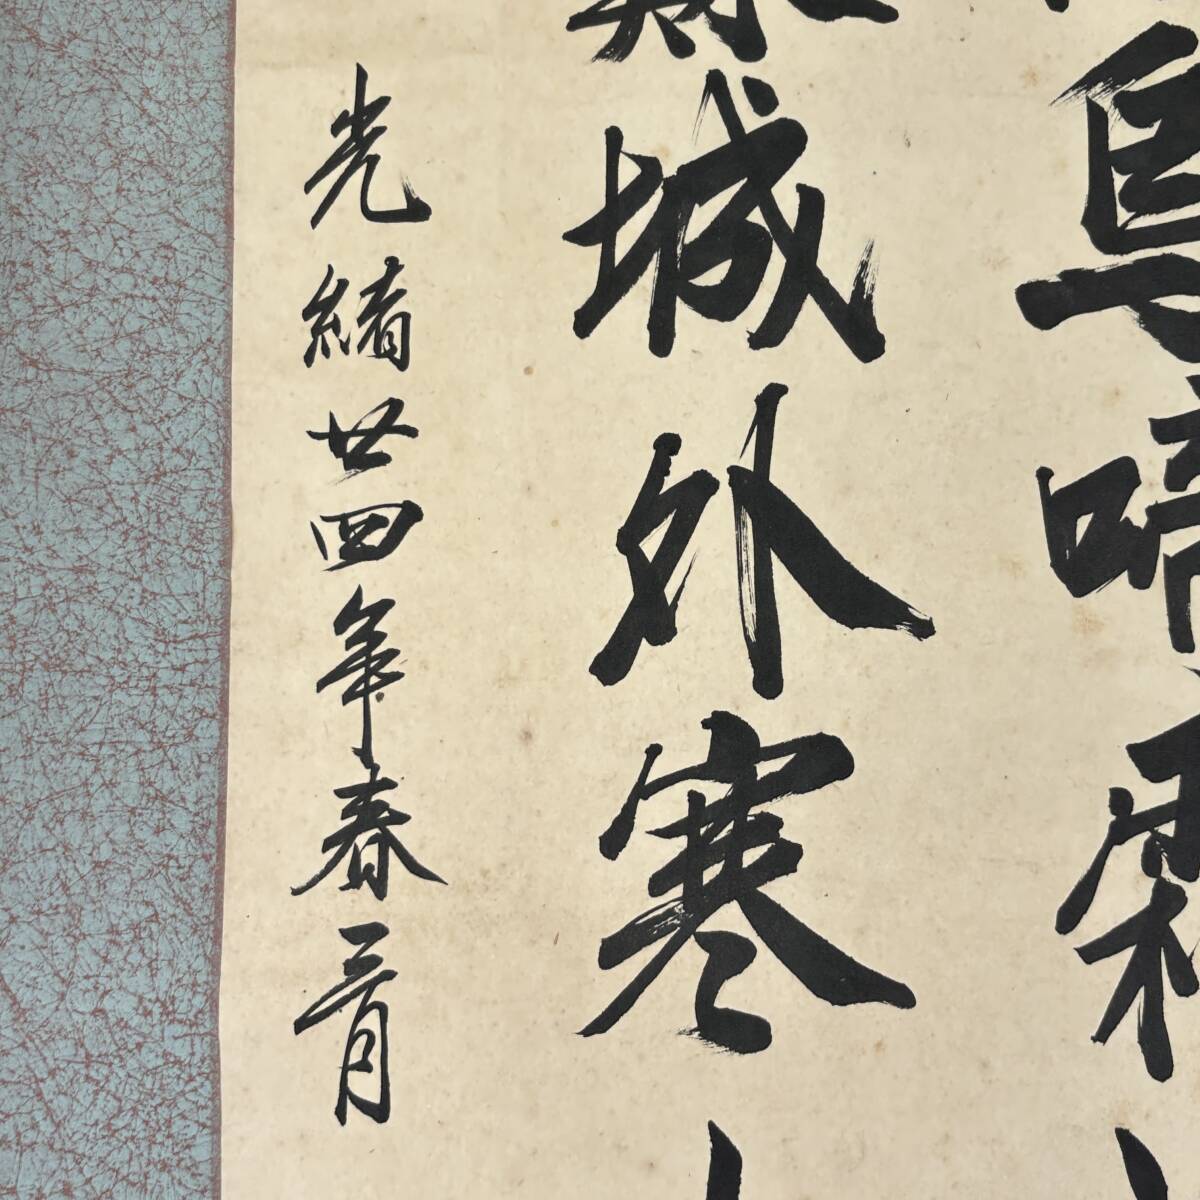 烏啼霜
蘇城外寒
光緒廿四年春三月